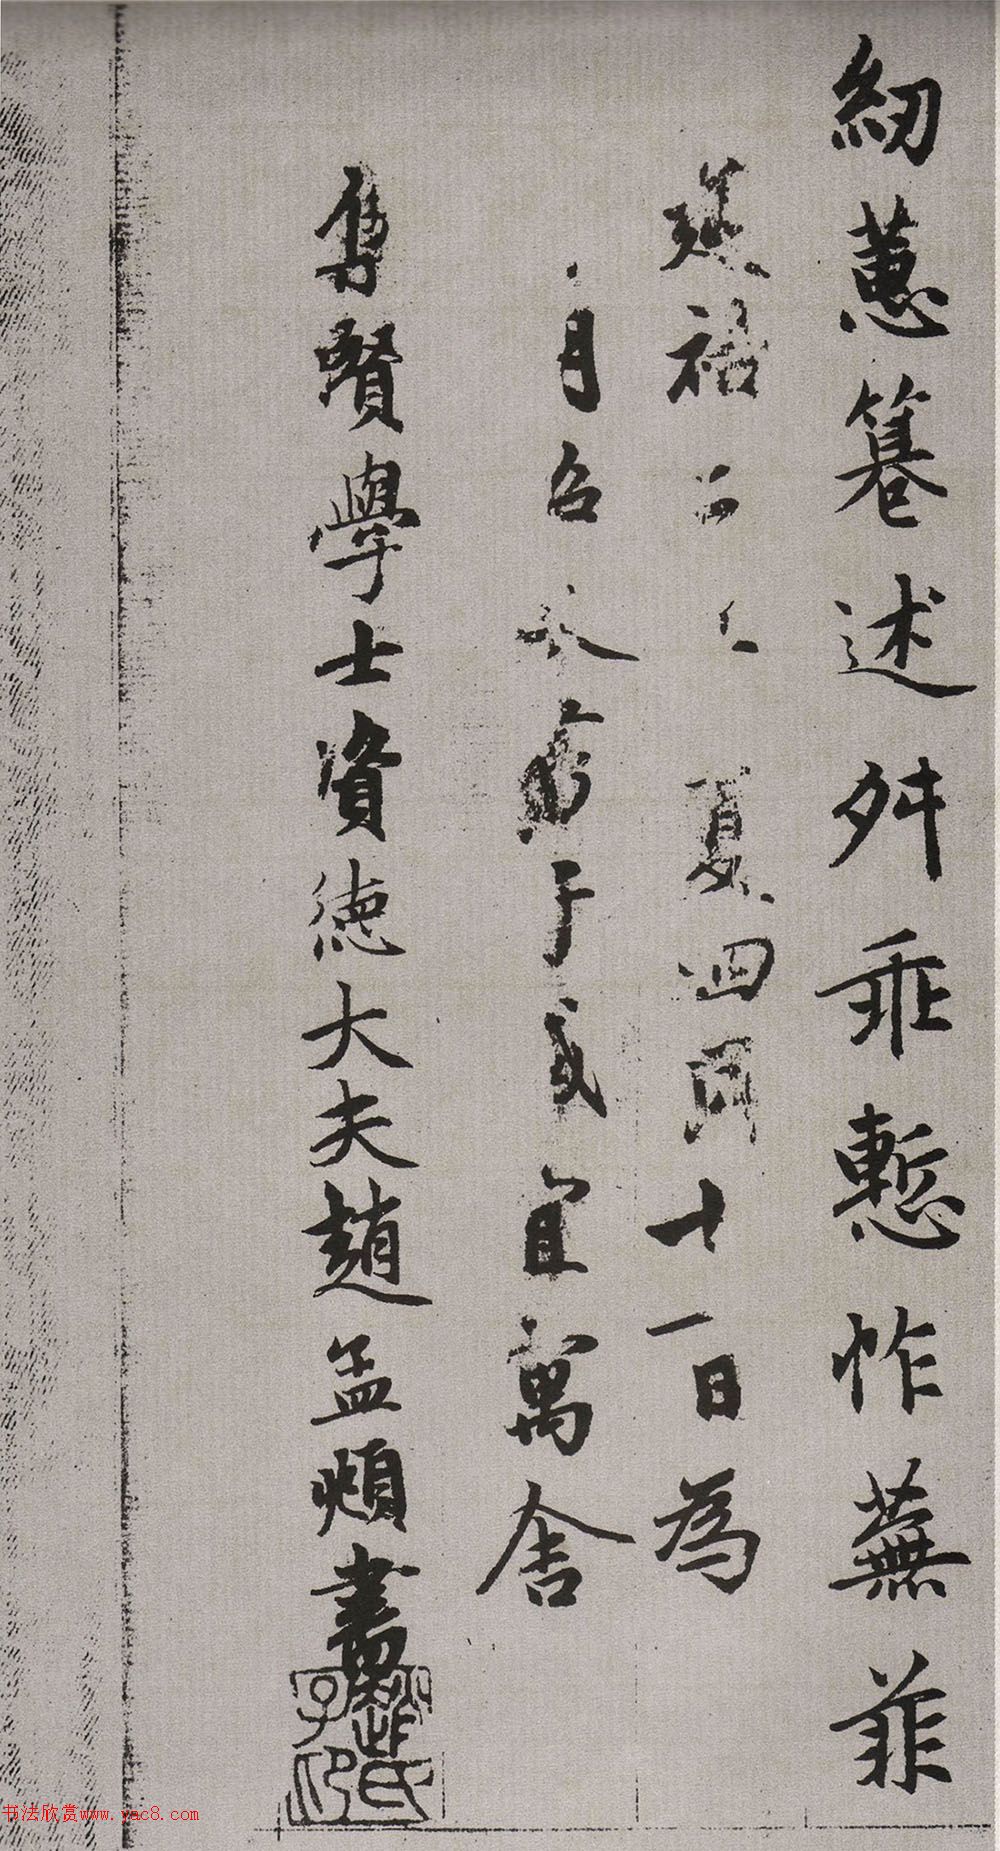 紉蕙纂述舛乖慙怍蕪菲
延祐 夏四月十一日為
月 于 宜寓舍
集賢學士資德大夫趙孟頫書
趙氏子印
书法欣赏www.yac8.com